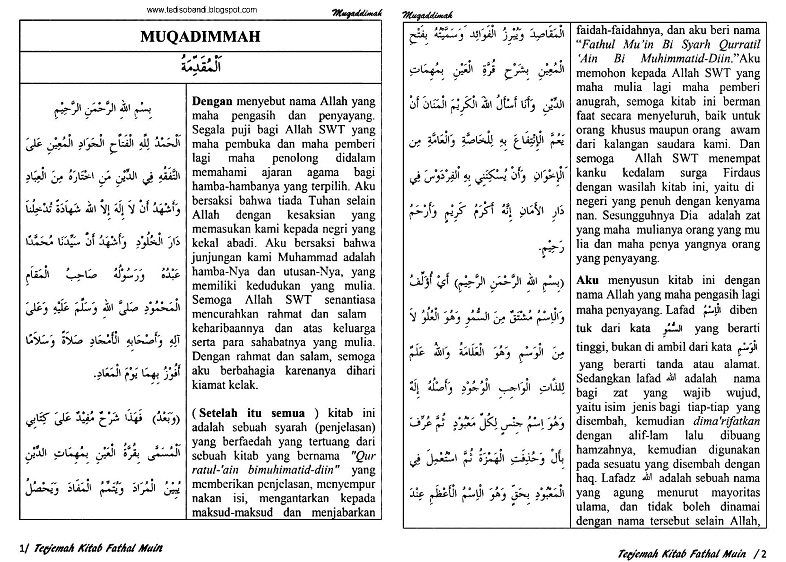 www.tedisobandi.blogspot.com
Muqaddimah
MUQADIMMAH
اَلْمُقَدِّمَةُ
بِسْمِ اللهِ الرَّحْمَنِ الرَّحِيْمِ
اَلْحَمْدُ لِلّٰهِ الْفَتَّاحِ الْجَوَادِ الْمُعِيْنِ عَلىَ
التَّفَقُّهِ فِي الدِّيْنِ مَنِ اخْتَارَهُ مِنَ الْعِبَادِ
وَأَشْهَدُ أَنْ لاَ إِلَهَ إِلاَّ الله شَهَادَةً تُدْخِلُنَا
دَارَ الْخُلُوْدِ وَأَشْهَدُ أَنَّ سَيِّدَنَا مُحَمَّدًا
عَبْدُهُ وَرَسُوْلُهُ صَاحِبُ الْمَقَامِ
الْمَحْمُوْدِ صَلَّى اللهُ وَسَلَّمَ عَلَيْهِ وَعَلىَ
آلِهِ وَأَصْحَابِهِ الْأَمْجَادِ صَلاَةً وَسَلاَمًا
أَفُوْزُ بِهِمَا يَوْمَ الْمَعَادِ.
(وَبَعْدُ) فَهَذَا شَرْحٌ مُفِيْدٌ عَلىَ كِتَابِي
الْمُسَمَّى بِقُرَّةِ الْعَيْنِ بِمُهِمَّاتِ الدِّيْنِ
يُبَيِّنُ الْمُرَادَ وَيُتَمِّمُ الْمَفَادَ وَيُحَصِّلُ
Dengan menyebut nama Allah yang
maha pengasih dan penyayang.
Segala puji bagi Allah SWT yang
maha pembuka dan maha pemberi
lagi maha penolong didalam
memahami ajaran agama bagi
hamba-hambanya yang terpilih. Aku
bersaksi bahwa tiada Tuhan selain
Allah dengan kesaksian yang
memasukan kami kepada negri yang
kekal abadi. Aku bersaksi bahwa
junjungan kami Muhammad adalah
hamba-Nya dan utusan-Nya, yang
memiliki kedudukan yang mulia.
Semoga Allah SWT senantiasa
mencurahkan rahmat dan salam
keharibaannya dan atas keluarga
serta para sahabatnya yang mulia.
Dengan rahmat dan salam, semoga
aku berbahagia karenanya dihari
kiamat kelak.
( Setelah itu semua ) kitab ini
adalah sebuah syarah (penjelasan)
yang berfaedah yang tertuang dari
sebuah kitab yang bernama "Qur
ratul-'ain bimuhimatid-diin" yang
memberikan penjelasan, menyempur
nakan isi, mengantarkan kepada
maksud-maksud dan menjabarkan
1/ Terjemah Kitab Fathal Muin
Muqaddimah
الْمَقَاصِدَ وَيُبْرِزُ الْفَوَائِدَ وَسَمَّيْتُهُ بِفَتْحِ
الْمُعِيْنِ بِشَرْحِ قُرَّةِ الْعَيْنِ بِمُهِمَّاتِ
الدِّيْنِ وَأَنَا أَسْأَلُ اللهَ الْكَرِيْمَ الْمَنَانَ أَنْ
يَعُمَّ الْإِنْتِفَاعَ بِهِ لِلْخَاصَّةِ وَالْعَامَّةِ مِنَ
الْإِخْوَانِ وَأَنْ يُسْكِنَنِي بِهِ الْفِرْدَوْسَ فِي
دَارِ الْأَمَانِ إِنَّهُ أَكْرَمُ كَرِيْمٍ وَأَرْحَمُ
رَحِيْمٍ.
(بِسْمِ اللهِ الرَّحْمَنِ الرَّحِيْمِ) أَيْ أُؤَلِّفُ
وَالْاِسْمُ مُشْتَقٌّ مِنَ السُّمُوِّ وَهُوَ الْعُلُوُّ لاَ
مِنَ الْوَسْمِ وَهُوَ الْعَلاَمَةُ وَاللهُ عَلَمٌ
لِلذَّاتِ الْوَاجِبِ الْوُجُوْدِ وَأَصْلُهُ إِلَهٌ
وَهُوَ اِسْمُ جِنْسٍ لِكُلِّ مَعْبُوْدٍ ثُمَّ عُرِّفَ
بِأَلْ وَحُذِفَتِ الْهَمْزَةُ ثُمَّ اسْتُعْمِلَ فِي
الْمَعْبُوْدِ بِحَقٍّ وَهُوَ الْاِسْمُ الْأَعْظَمُ عِنْدَ
faidah-faidahnya, dan aku beri nama
"Fathul Mu'in Bi Syarh Qurratil
'Ain Bi Muhimmatid-Diin."Aku
memohon kepada Allah SWT yang
maha mulia lagi maha pemberi
anugrah, semoga kitab ini berman
faat secara menyeluruh, baik untuk
orang khusus maupun orang awam
dari kalangan saudara kami. Dan
semoga Allah SWT menempat
kanku kedalam surga Firdaus
dengan wasilah kitab ini, yaitu di
negeri yang penuh dengan kenyama
nan. Sesungguhnya Dia adalah zat
yang maha mulianya orang yang mu
lia dan maha penya yangnya orang
yang penyayang.
Aku menyusun kitab ini dengan
nama Allah yang maha pengasih lagi
maha penyayang. Lafad اْلاِسْمُ diben
tuk dari kata السُّمُوِّ yang berarti
tinggi, bukan di ambil dari kata الْوَسْمِ
yang berarti tanda atau alamat.
Sedangkan lafad الله adalah nama
bagi zat yang wajib wujud,
yaitu isim jenis bagi tiap-tiap yang
disembah, kemudian dima'rifatkan
dengan alif-lam lalu dibuang
hamzahnya, kemudian digunakan
pada sesuatu yang disembah dengan
haq. Lafadz الله adalah sebuah nama
yang agung menurut mayoritas
ulama, dan tidak boleh dinamai
dengan nama tersebut selain Allah,
Terjemah Kitab Fathal Muin / 2